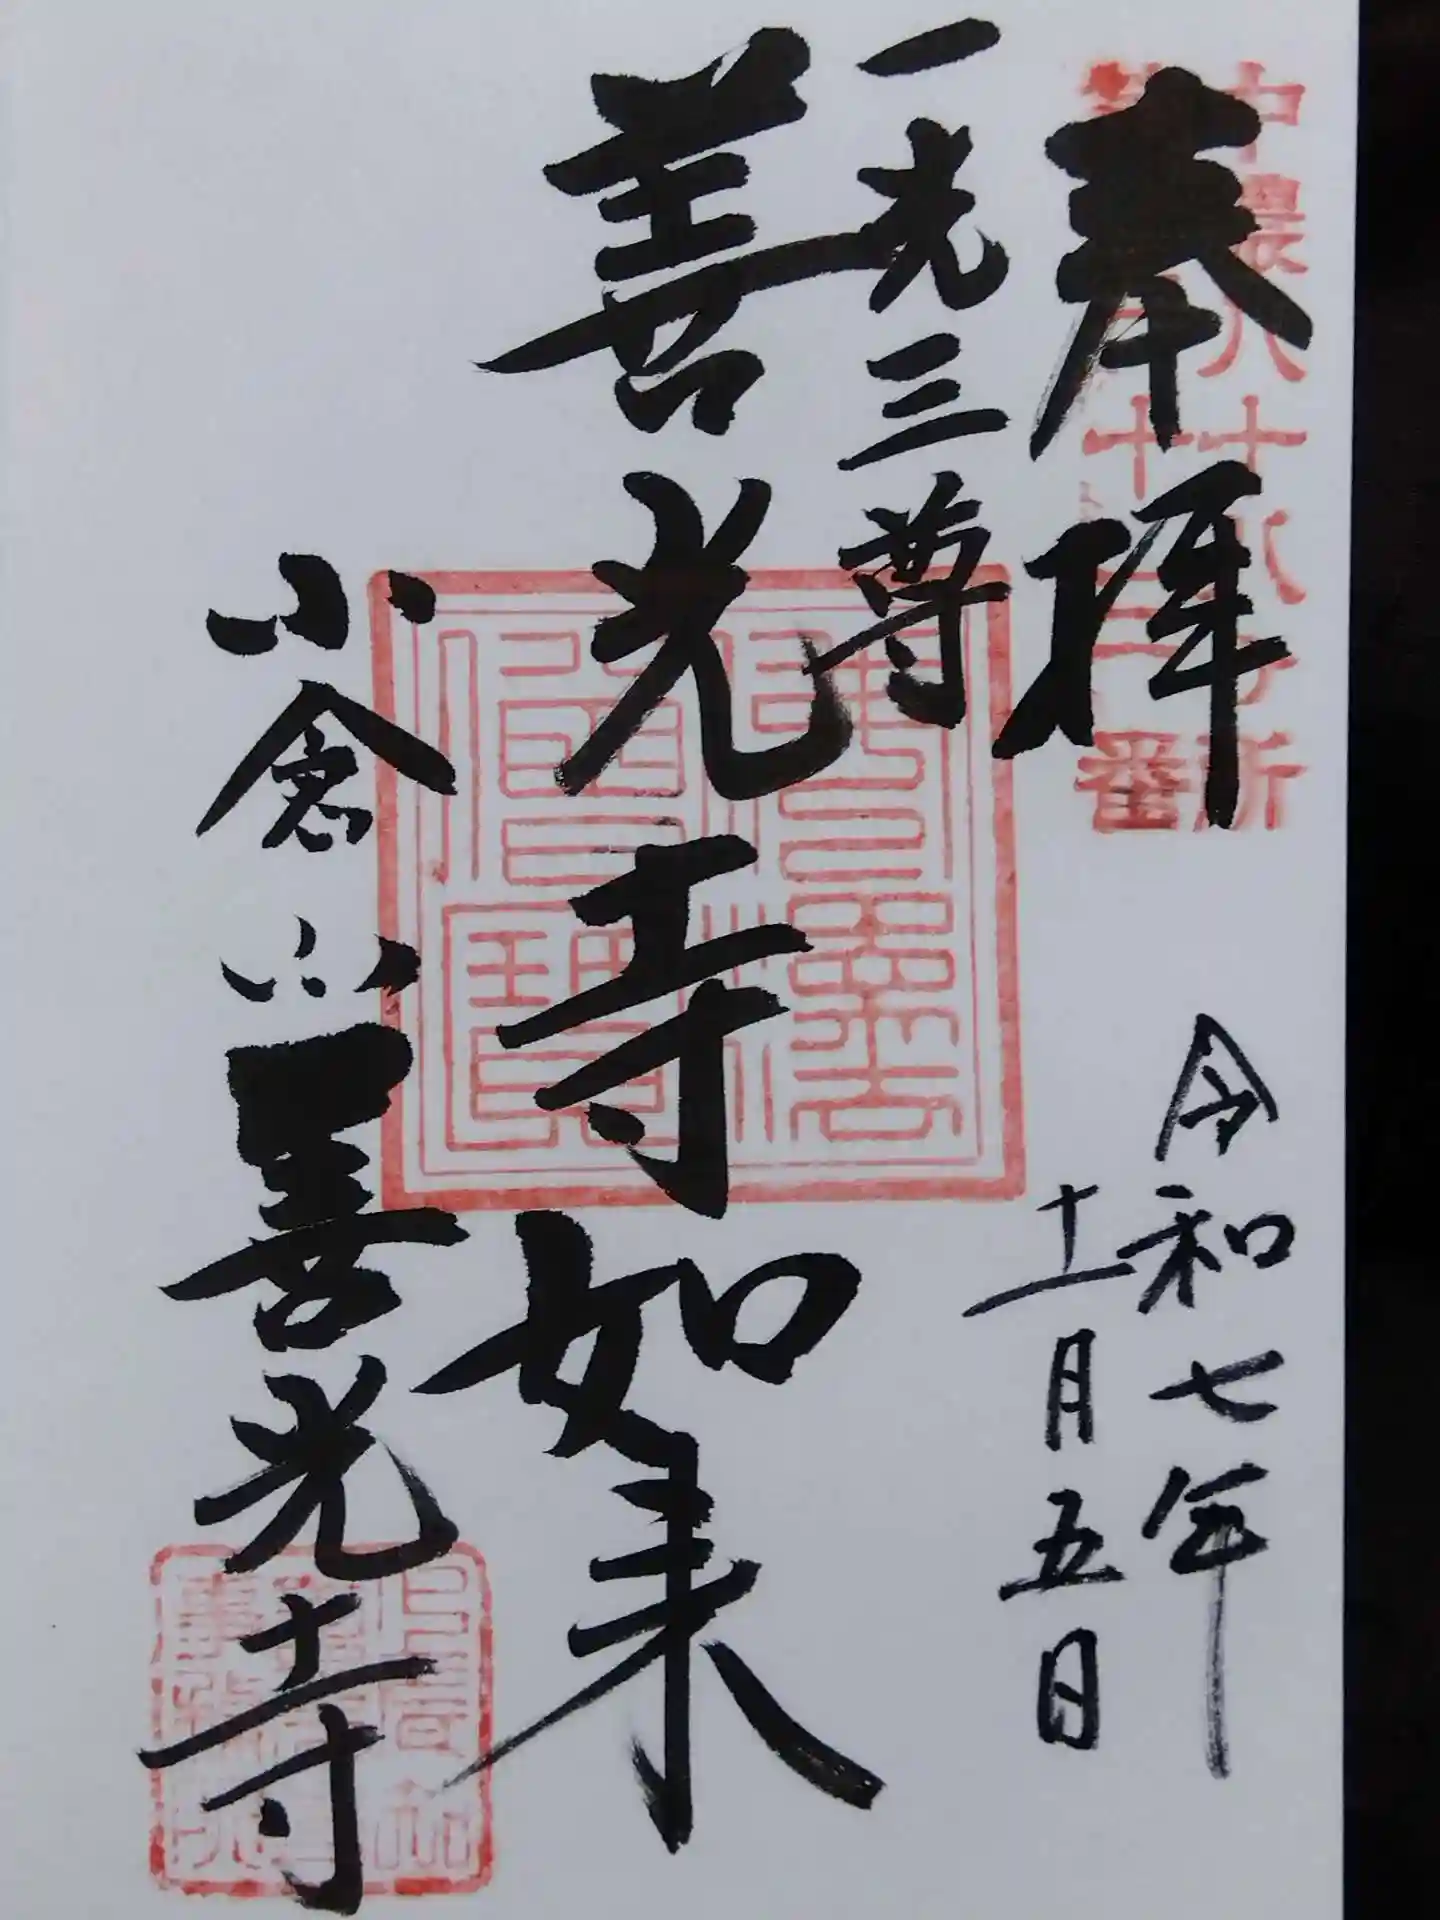 中濃八十八ヶ所
奉拝
令和七年
十一月五日
一光三尊
善光寺如来
小倉山善光寺